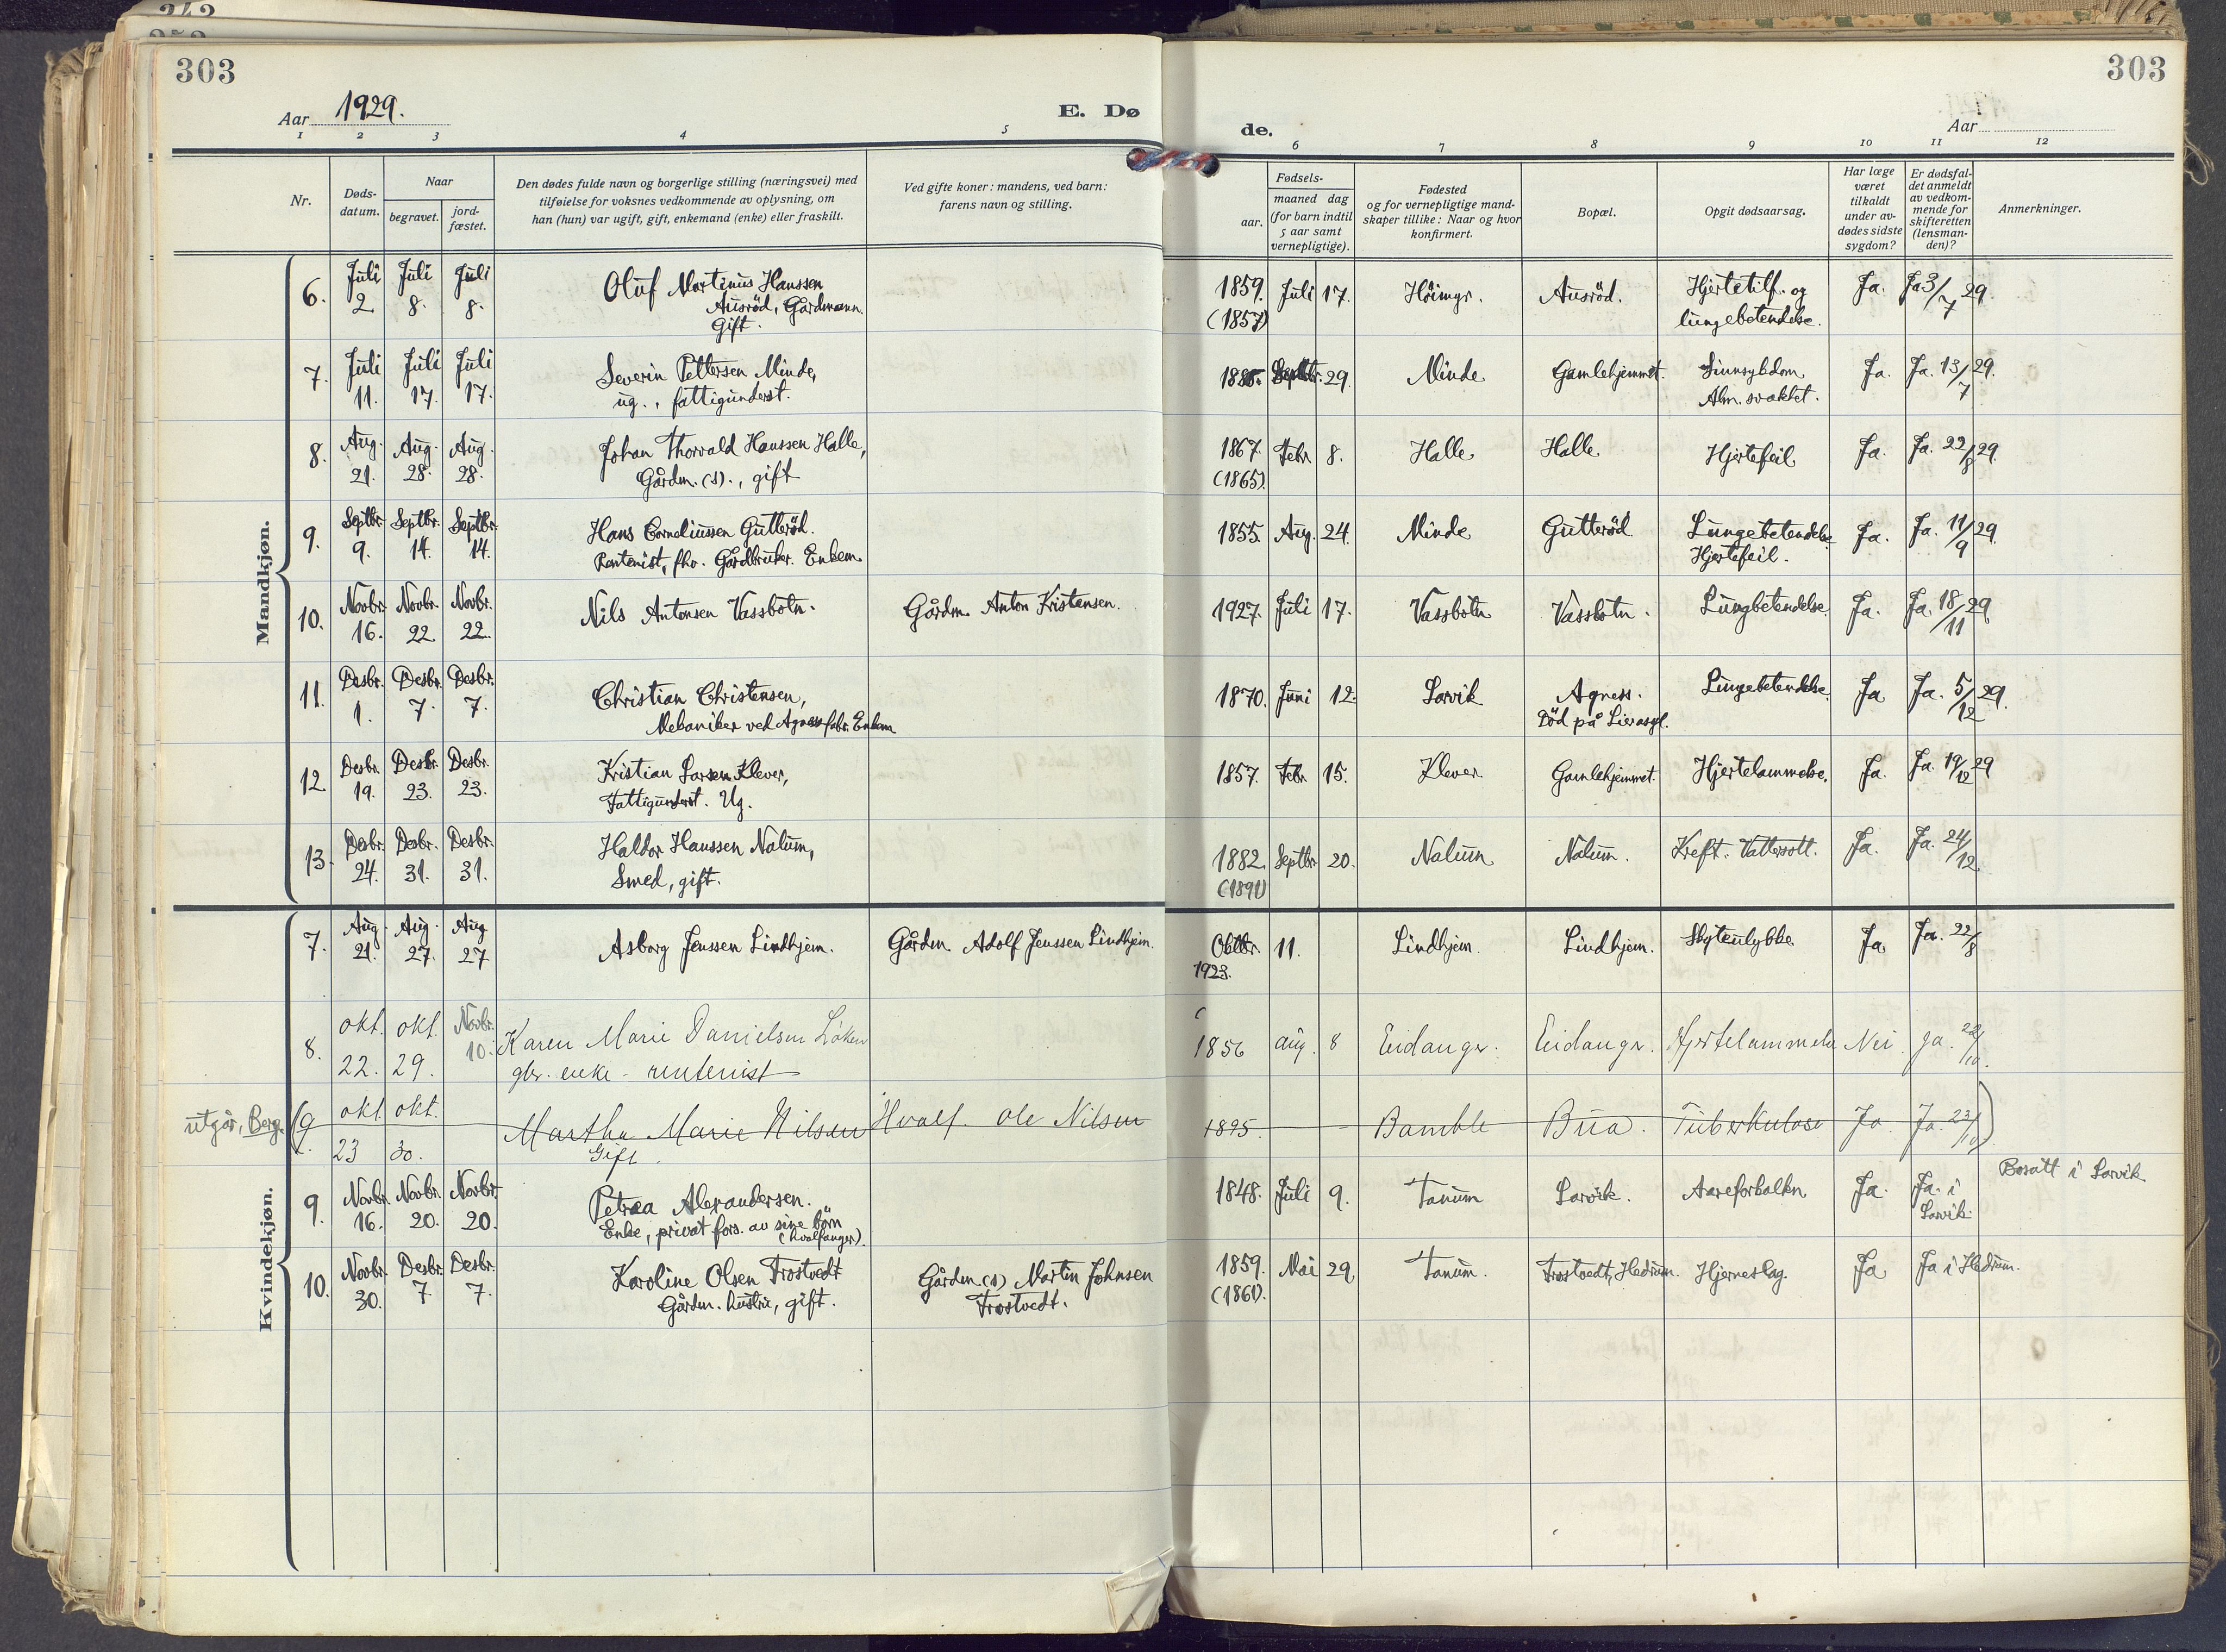 303
303
Aar 1929.
E. Dø
de.
Aar
1 2 3 4 5 6 7 8 9 10 11 12
Nr.
Døds-
datum.
Naar
begravet.
jord-
fæstet.
Den dødes fulde navn og borgerlige stilling (næringsvei) med
tilføielse for voksnes vedkommende av oplysning, om
han (hun) var ugift, gift, enkemand (enke) eller fraskilt.
Ved gifte koner: mandens, ved barn:
farens navn og stilling.
Fødsels-
aar.
maaned dag
(for barn indtil
5 aar samt
vernepligtige).
Fødested
og for vernepligtige mand-
skaper tillike: Naar og hvor
konfirmert.
Bopæl.
Opgit dødsaarsag.
Har læge
været
tilkaldt
under av-
dødes sidste
sygdom?
Er dødsfal-
det anmeldt
av vedkom-
mende for
skifteretten
(lensman-
den)?
Anmerkninger.
Mandkjøn.
6. Juli 2. Juli 8. Juli 8. Oluf Martinus Hanssen
Ausröd, Gårdmann.
Gift.
1859. (1857) Juli 17. Höimyr. Ausröd. Hjertetilf. og
lungebetendelse. Ja. Ja 3/7 29.
7. Juli 11. Juli 17. Juli 17. Severin Pettersen Minde,
ug., fattigunderst.
Septbr. 29. Minde Gamlehjemmet. Sinnsykdom
Alm. svakhet. Ja. Ja. 13/7 29.
8. Aug. 21. Aug. 28. Aug. 28. Johan Thorvald Hanssen Halle,
Gårdm. (s)., gift
1867. (1865). Febr 8. Halle Halle Hjertefeil Ja. Ja. 22/8 29.
9. Septbr. 9. Septbr. 14. Septbr. 14. Hans Corneliussen Gutteröd.
Rentenist, fhv. Gårdbruker. Enkem.
1855. Aug. 24. Minde Gutteröd Lungebetendelse
Hjertefeil. Ja. Ja. 11/9 29.
10. Novbr. 16. Novbr. 22. Novbr. 22. Nils Antonsen Vassbotn. Gårdm. Anton Kristensen.
1927. Juli 17. Vassbotn Vassbotn. Lungbetendelse. Ja. Ja. 18/11 29
11. Desbr. 1. Desbr. 7. Desbr. 7. Christian Christensen,
Mekaniker ved Agness fabr. Enkem
1870. Juni 12. Larvik Agness.
Död på Lierasyl. Lungebetendelse. Ja Ja. 5/12 29.
12. Desbr. 19. Desbr. 23. Desbr. 23. Kristian Larsen Klever,
Fattigunderst. Ug.
1857. Febr. 15. Klever Gamlehjemmet. Hjertelammelse. Ja. Ja. 19/12 29
13. Desbr. 24. Desbr. 31. Desbr. 31. Haldor Hanssen Nalum,
Smed, gift.
1882. (1891) Septbr 20. Nalum Nalum. Kreft. Vattersott. Ja. Ja. 24/12
Kvindekjøn.
7. Aug. 21. Aug. 27. Aug 27. Asborg Jenssen Lindhjem. Gårdm. Adolf Jenssen Lindhjem.
Oktbr. 1923. 11. Lindhjem. Lindhjem. Skyteulykke Ja Ja. 22/8
8. okt. 22. okt. 29. Novbr. 10. Karen Marie Danielsen Löken
gbr. enke - rentenist
1856 aug. 8 Eidanger. Eidanger. Hjertelammelse Nei. ja. 22/10.
utgår, Berg. (9. okt. 23 okt. 30. Martha Marie Nilsen
Gift. Hvalf. Ole Nilsen
1895. Bamble Bua. Tuberkulose Ja Ja 23/10)
9. Novbr. 16. Novbr. 20. Novbr. 20. Petrea Alexandersen.
Enke, privat fors. av sine börn
(hvalfanger).
1848. Juli 9. Tanum Larvik. Aareforkalkn. Ja. Ja. i
Larvik. Bosatt i Larvik
10. Novbr. 30. Desbr. 7. Desbr. 7. Karoline Olsen Trostvedt
Gårdm. hustru, gift. Gårdm. (s) Martin Johnsen
Trostvedt.
1859. (1861). Mai 29. Tanum. Trostvedt, Hedrum. Hjerneslag. Ja Ja i Hedrum.